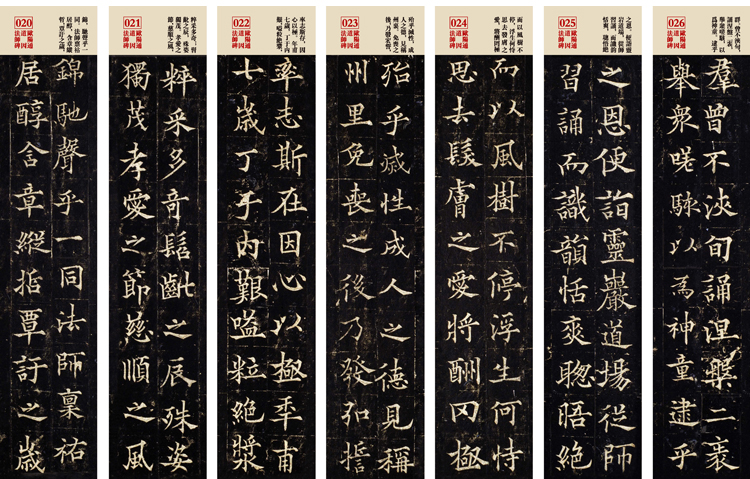 020
歐陽通
道因
法師碑
錦馳聲乎一同法師稟祐
居醇含章縱哲覃訏之歲
021
歐陽通
道因
法師碑
粹采多奇髫齓之辰殊姿
獨茂孝愛之節慈順之風
022
歐陽通
道因
法師碑
率志斯在因心以極年甫
七歲丁于內艱嗌粒絕漿
023
歐陽通
道因
法師碑
殆乎滅性成人之德見稱
州里免喪之後乃發弘誓
024
歐陽通
道因
法師碑
而以風樹不停浮生何恃
思去髮膚之愛將酬罔極
025
歐陽通
道因
法師碑
之恩便詣靈巖道場從師
習誦而識韻恬爽聰晤絕
026
歐陽通
道因
法師碑
羣曾不浹旬誦涅槃二袠
舉衆嗟駭以為神童逮乎